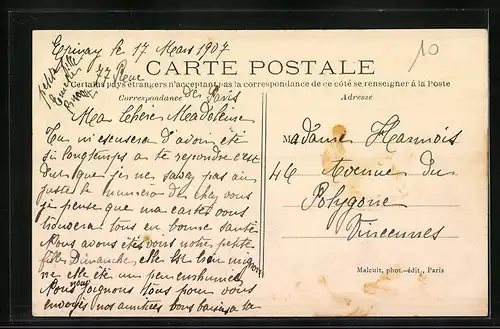 Epinay le 17 Mars 1907
77 Rue
de Paris
petite fille
CARTE POSTALE
Certains pays étrangers n'acceptant pas la correspondance de ce côté se renseigner à la Poste
Correspondance
Adresse
Ma Chère Madeleine
Tu m'escusera d'avoir été
si longtemps a te repondre c'est
du que je ne savez pas au
juste le numéro de chez vous
je pense que ma cartes vous
trouvera tous en bonne santé
Nous avons étés vous notre petite
fille Dimanche, elle est bien mignonne
elle été un peu enrhumée
Nous nous joignons tous pour vous
envoyer nos amitiées bons baisers a ta
Madame Harmois
46 Avenue du
Polygone
Vincennes
Malcuit, phot.-édit., Paris
10